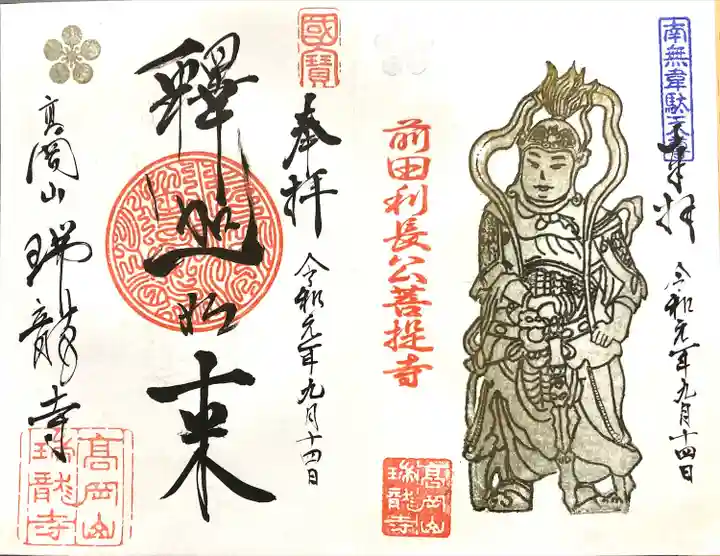 南無韋駄天尊
奉拝
令和元年九月十四日
前田利長公菩提寺
高岡山
瑞龍寺
國寶
奉拝
令和元年九月十四日
釋迦如来
高岡山
瑞龍寺
高岡山
瑞龍寺